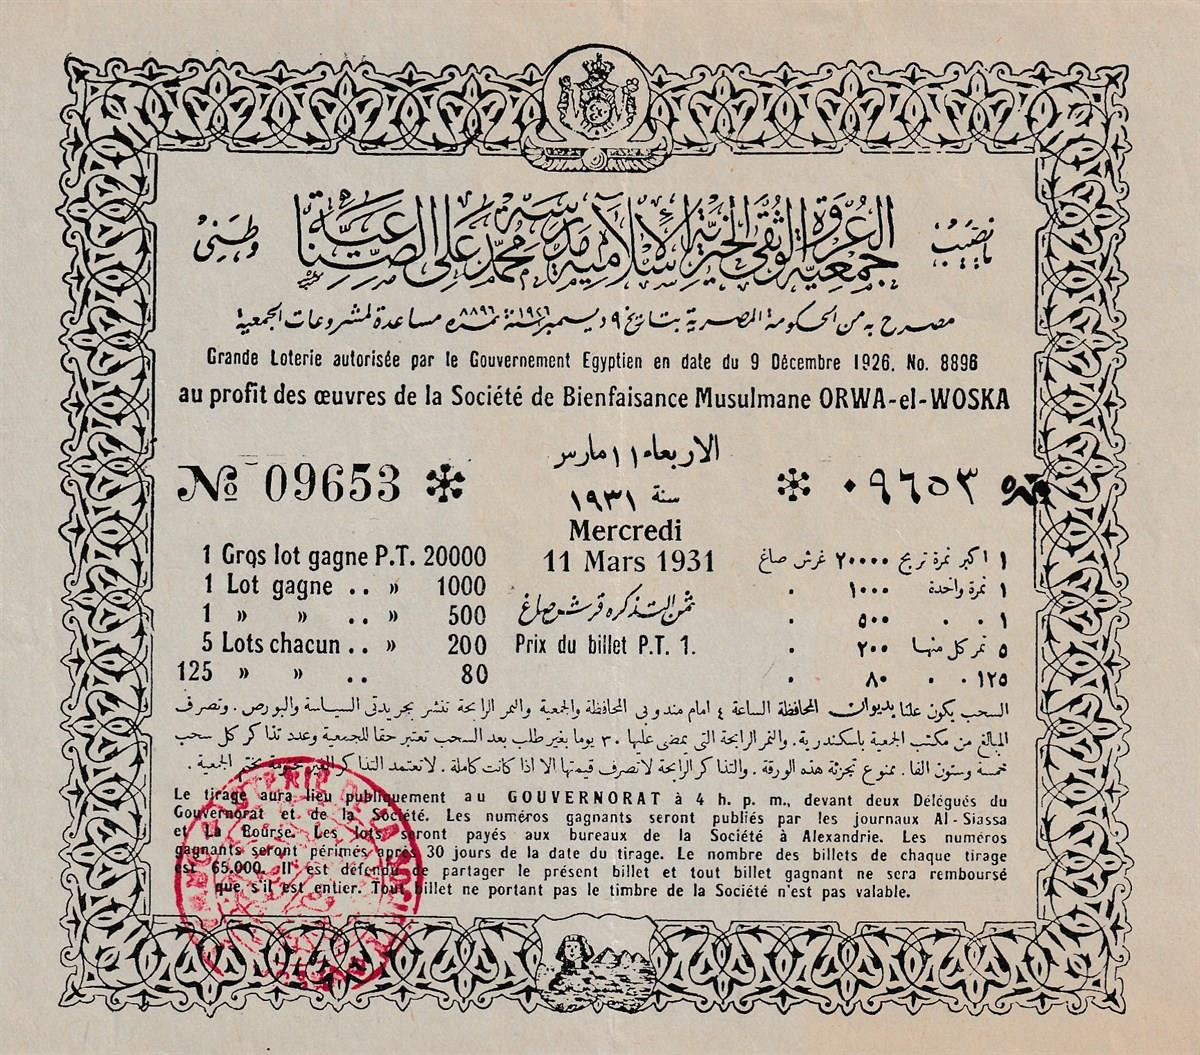 يانصيب
وطني
جمعية العروة الوثقى الخيرية الإسلامية مدرسة محمد علي الصناعية
مصرح به من الحكومة المصرية بتاريخ ٩ ديسمبر سنة ١٩٢٦ نمره ٨٨٩٦ مساعدة لمشروعات الجمعية
Grande Loterie autorisée par le Gouvernement Egyptien en date du 9 Décembre 1926. No. 8896
au profit des œuvres de la Société de Bienfaisance Musulmane ORWA-el-WOSKA
الاربعاء ١١ مارس
سنة ١٩٣١
№ 09653
نمره ٠٩٦٥٣
Mercredi
11 Mars 1931
1 Gros lot gagne P.T. 20000
1 Lot gagne .. » 1000
1 » » .. » 500
5 Lots chacun .. » 200
125 » » .. 80
ثمن التذكره قرش صاغ
Prix du billet P.T. 1.
١ اكبر نمرة تربح ٢٠٠٠٠ غرش صاغ
١ نمرة واحدة ١٠٠٠ .
١ . . ٥٠٠ .
٥ نمر كل منها ٢٠٠ .
١٢٥ . . ٨٠ .
السحب يكون علنا بديوان المحافظة الساعة ٤ امام مندوبى المحافظة والجمعية والنمر الرابحة تنشر بجريدتى السياسة والبورص . وتصرف
المبالغ من مكتب الجمعية باسكندرية. والنمر الرابحة التى يمضى عليها ٣٠ يوما بغير طلب بعد السحب تعتبر حقا للجمعية وعدد تذاكر كل سحب
خمسة وستون الفا. ممنوع تجزئة هذه الورقة . والتذاكر الرابحة لا تصرف قيمتها الا اذا كانت كاملة . لا تعتمد التذاكر الغير مختومة بختم الجمعية .
Le tirage aura lieu publiquement au GOUVERNORAT à 4 h. p. m., devant deux Délégués du
Gouvernorat et de la Société. Les numéros gagnants seront publiés par les journaux Al-Siassa
et La Bourse. Les lots seront payés aux bureaux de la Société à Alexandrie. Les numéros
gagnants seront périmés après 30 jours de la date du tirage. Le nombre des billets de chaque tirage
est 65.000. Il est défendu de partager le présent billet et tout billet gagnant ne sera remboursé
que s'il est entier. Tout billet ne portant pas le timbre de la Société n'est pas valable.